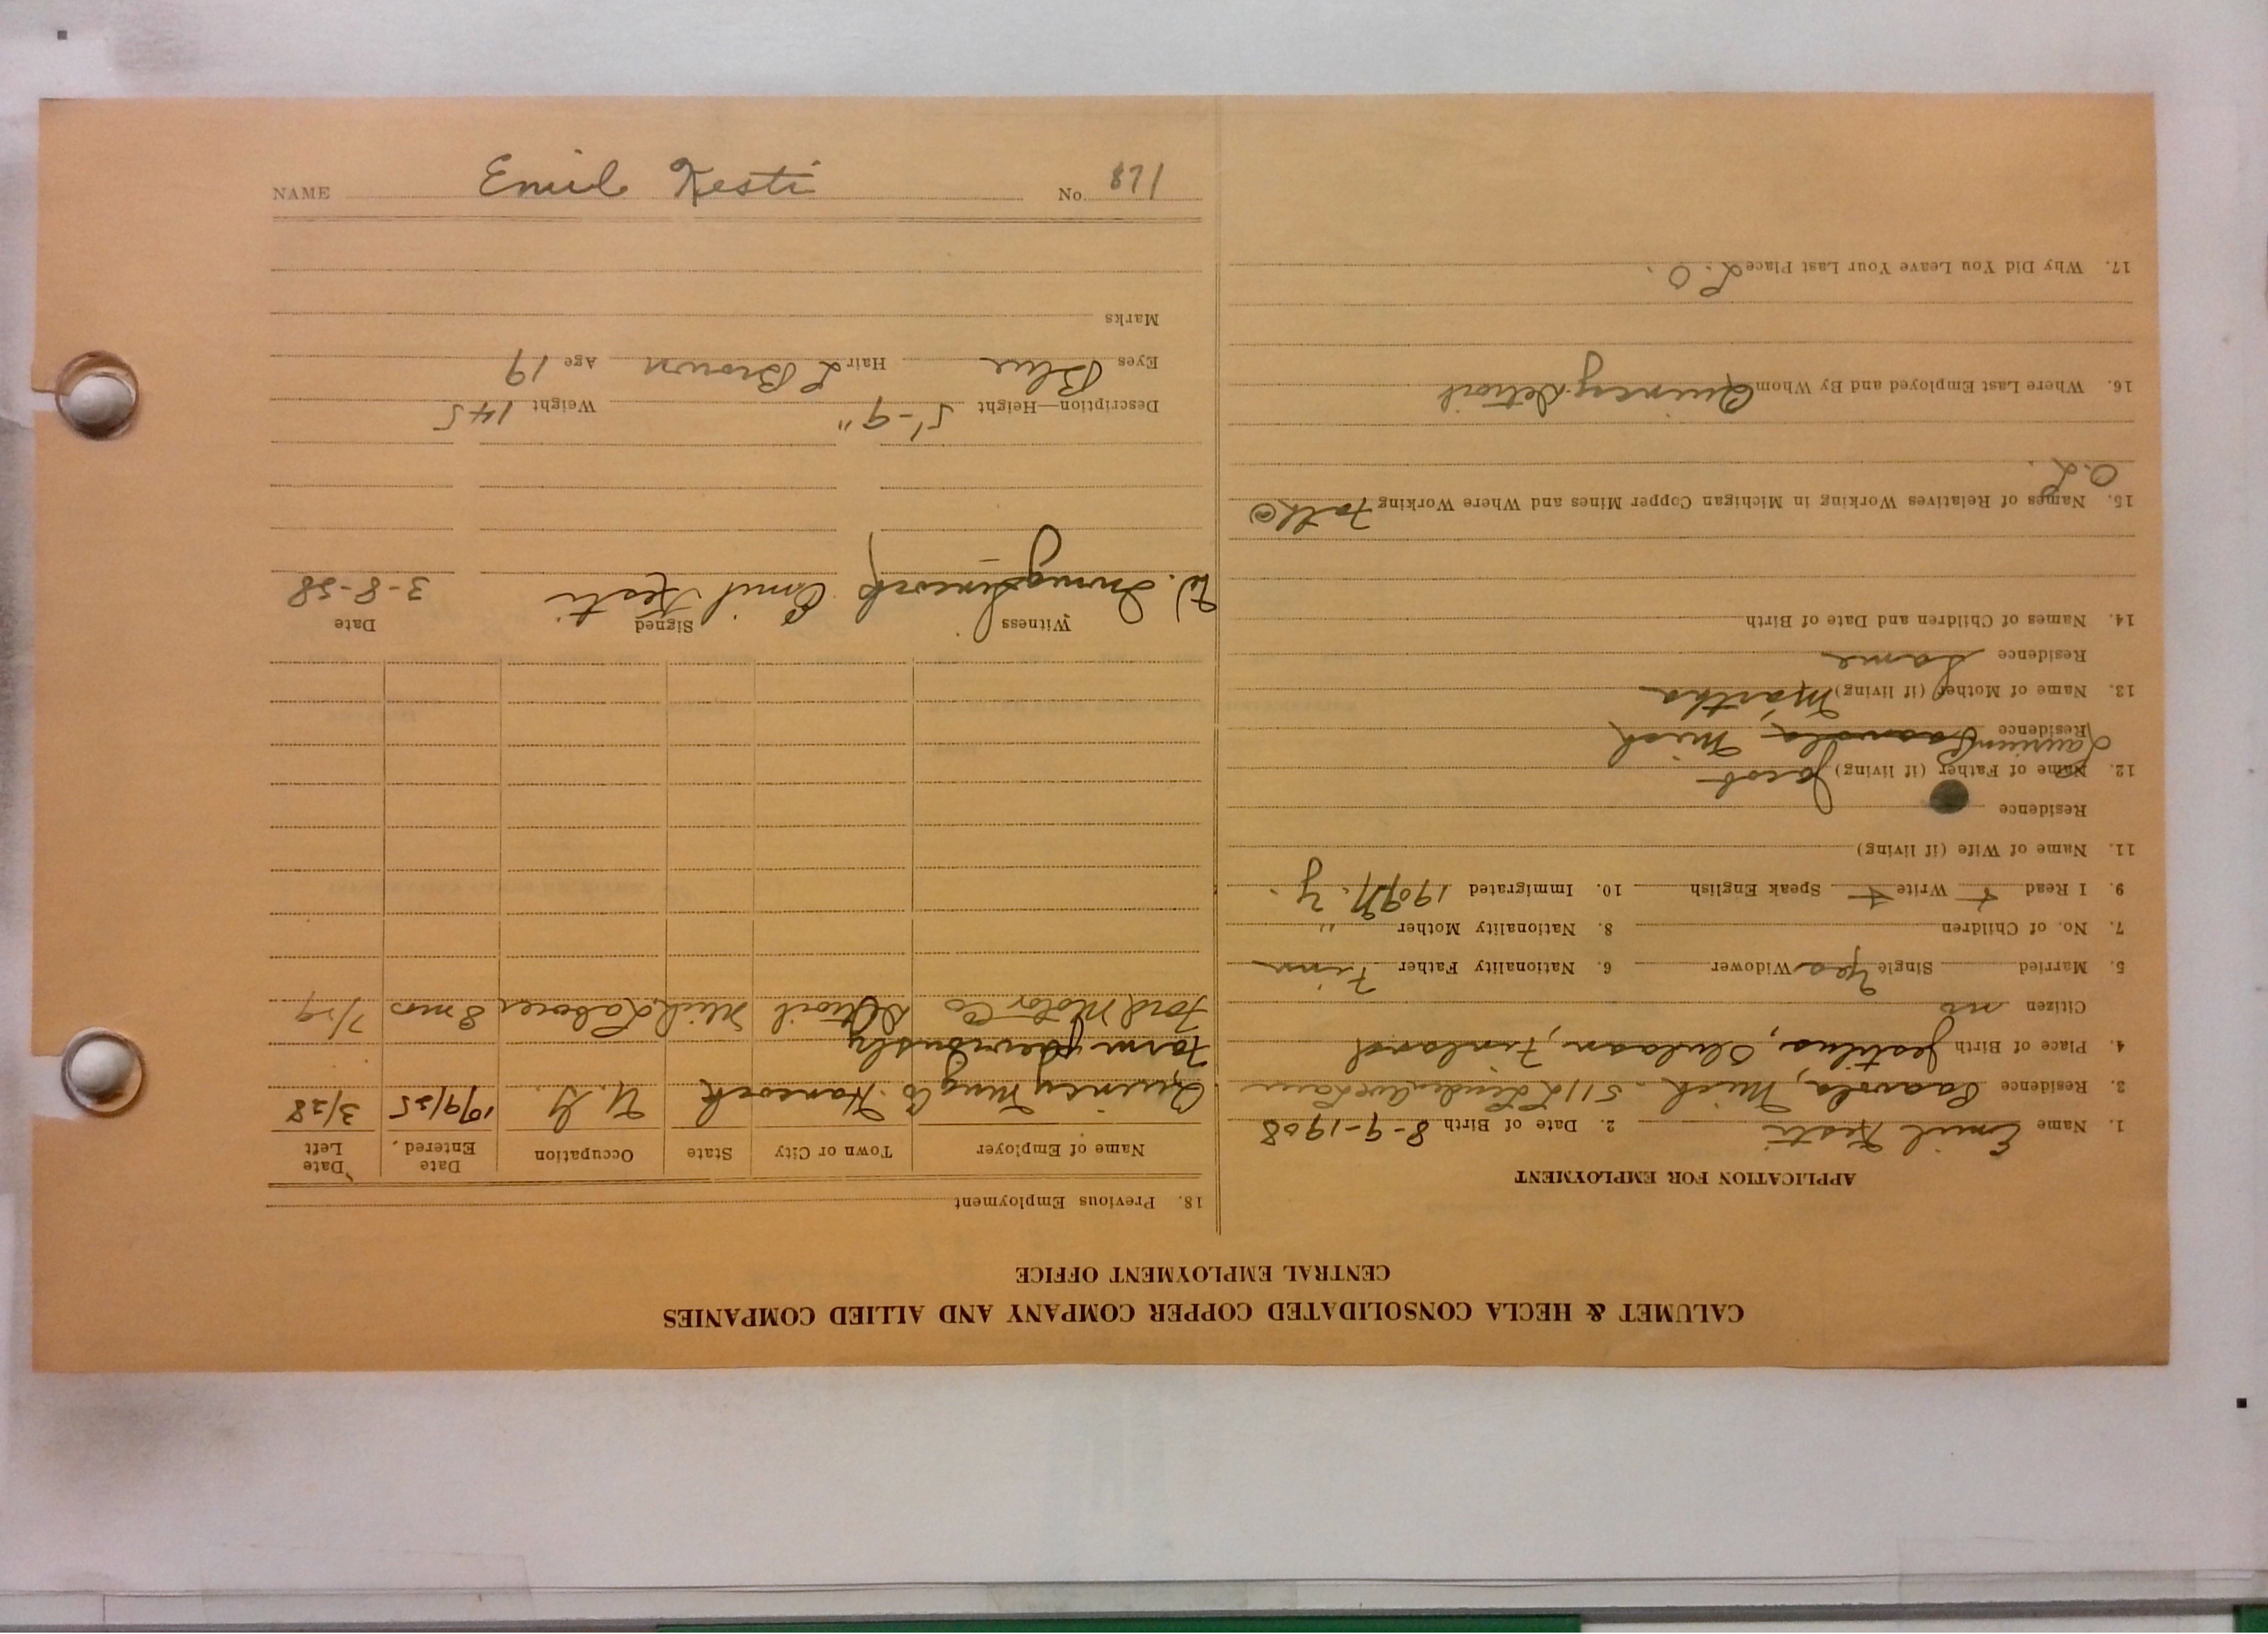 NAME Emil Kesti No. 871
CALUMET & HECLA CONSOLIDATED COPPER COMPANY AND ALLIED COMPANIES
CENTRAL EMPLOYMENT OFFICE
APPLICATION FOR EMPLOYMENT
1. Name Emil Kesti 2. Date of Birth 8-9-1908
3. Residence Paavola, Mich - 511 Linden Ave Laur
4. Place of Birth Finland
Citizen no
5. Married Single Yes Widower 6. Nationality Father Finn
7. No. of Children 8. Nationality Mother "
9. I Read + Write + Speak English 10. Immigrated 1909 N.Y.
11. Name of Wife (if living)
Residence
12. Name of Father (if living) Jacob
Residence Paavola Mich
Laurium
13. Name of Mother (if living) Martha
Residence Same
14. Names of Children and Date of Birth
15. Names of Relatives Working in Michigan Copper Mines and Where Working Father
O.L.
16. Where Last Employed and By Whom Quincy Detroit
17. Why Did You Leave Your Last Place L.O.
18. Previous Employment
Name of Employer Town or City State Occupation Date Entered Date Left
Quincy Mng Co. Hancock U.G. 10/9/25 3/28
Farm previously
Ford Motor Co Detroit Mich Laborer 8 mos 7/29
Witness Signed Date
W. Emil Kesti 3-8-28
Description—Height 5'-9" Weight 145
Eyes Blue Hair L Brown Age 19
Marks